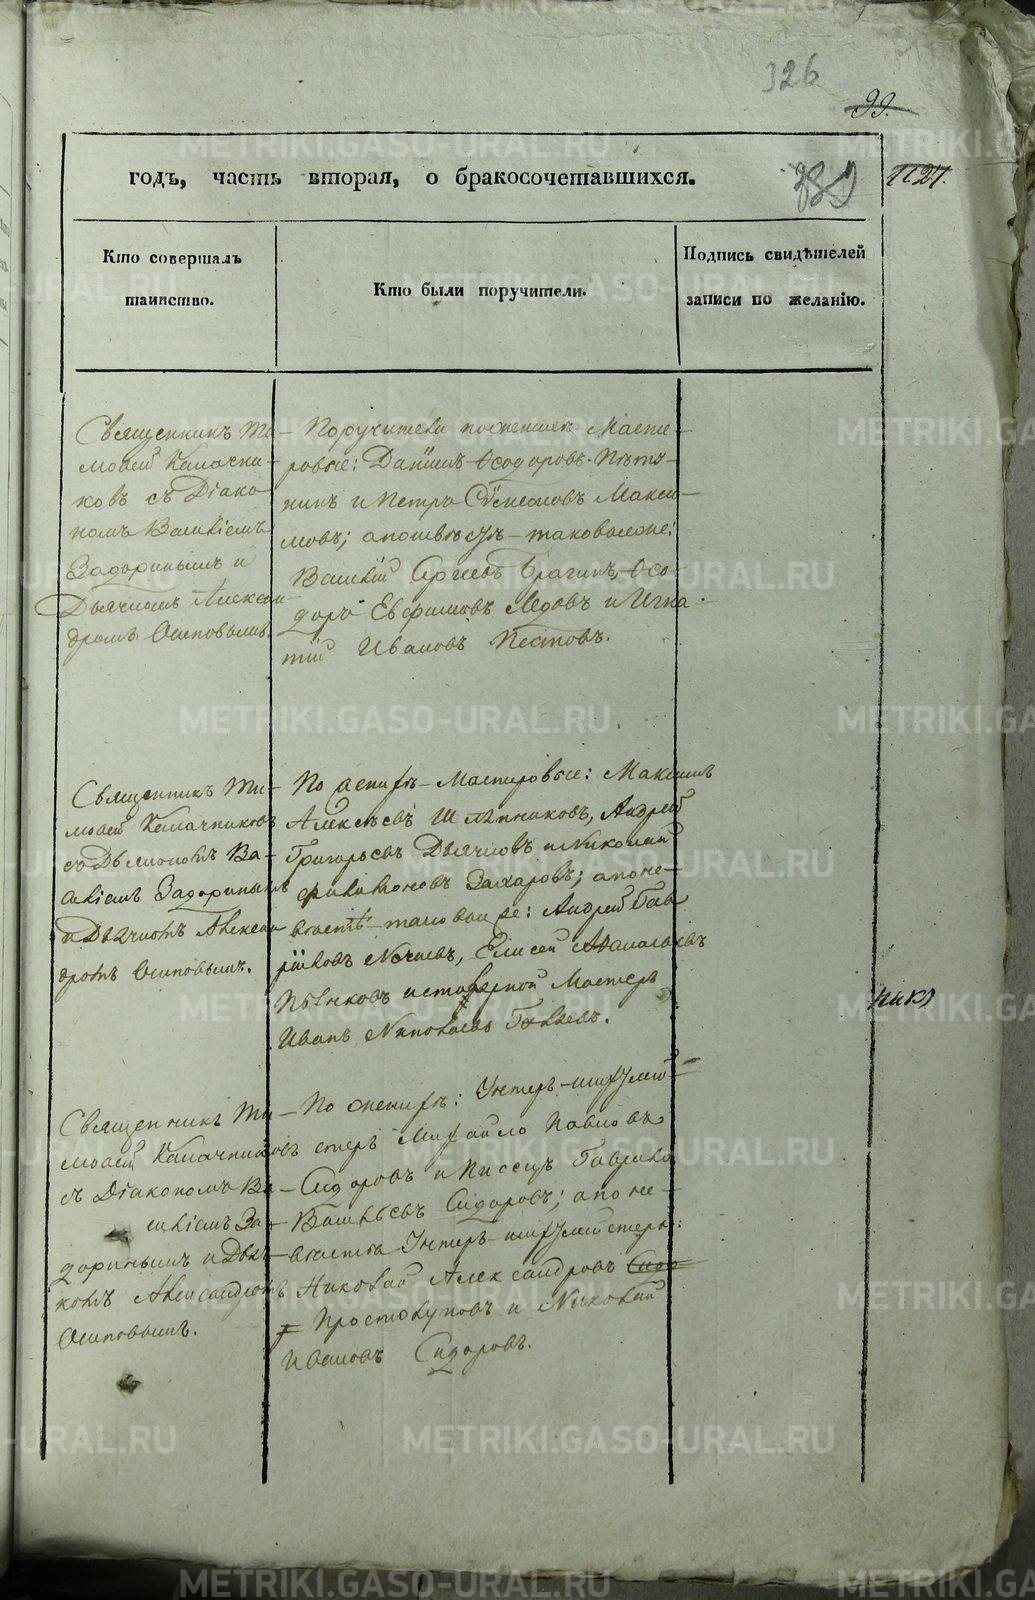 326
99.
годъ, часть вторая, о бракосочетавшихся.
Кто совершалъ
таинство.
Кто были поручители.
Подпись свидѣтелей
записи по желанію.
Священникъ Ти-
моѳей Калачни-
ковъ съ Діако-
номъ Василіемъ
Задоринымъ и
Дьячкомъ Алексан-
дромъ Осиповымъ.
Поручители по женихѣ Масте-
ровые: Даніилъ Ѳеодоровъ
и Петръ Сѵмеоновъ Макси-
мовъ; а по невѣстѣ таковые же:
Василій Сергѣевъ Брагинъ, Ѳео-
доръ Евфимовъ Ледовъ и Игна-
тій Ивановъ Пестовъ.
Священникъ Ти-
моѳей Калачниковъ
съ Діакономъ Ва-
силіемъ Задоринымъ
и Дьячкомъ Алексан-
дромъ Осиповымъ.
По женихѣ Мастеровые: Максимъ
Алексѣевъ Шляпниковъ, Андрей
Григорьевъ Дьячковъ и Николай
Филимоновъ Захаровъ; а по не-
вѣстѣ таковые же: Андрей Гав-
риловъ Нечаевъ, Елисей Аѳанасьевъ
Пьянковъ и Мастеръ
Иванъ Николаевъ
Священникъ Ти-
моѳей Калачниковъ
съ Діакономъ Ва-
силіемъ За-
доринымъ и Дьяч-
комъ Александромъ
Осиповымъ.
По женихѣ: Унтеръ-шихтмей-
стеръ Михайло Павловъ
Сидоровъ и Писецъ Гаврило
Васильевъ Сидоровъ; а по не-
вѣстѣ Унтеръ-шихтмейстеръ:
Николай Александровъ Сидо
Простолуповъ и Николай
Ивановъ Сидоровъ.